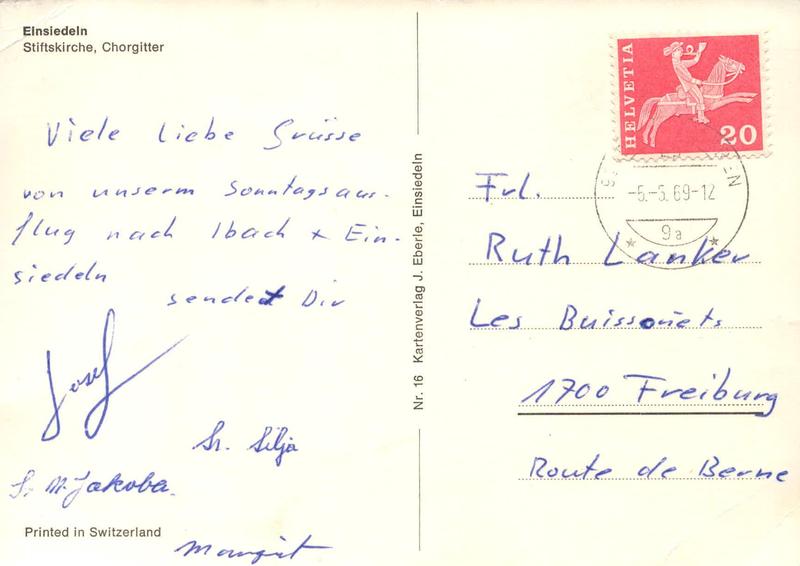 Einsiedeln
Stiftskirche, Chorgitter
Viele liebe Grüsse
von unserm Sonntagsaus-
flug nach Ibach + Ein-
siedeln
sendet Dir
Josef
Sr. Silja
Sr. M. Jakoba.
Margrit
Printed in Switzerland
Nr. 16 Kartenverlag J. Eberle, Einsiedeln
HELVETIA
20
-5.-5.69-12
9a
Frl.
Ruth Lanker
Les Buissonets
1700 Freiburg
Route de Berne